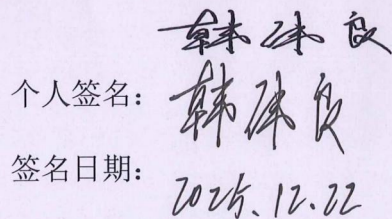 韩伟良
个人签名：韩伟良
签名日期：2025.12.22